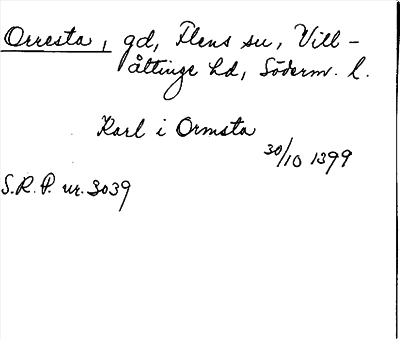 Orresta, gd, Flens su, Vill-
åttinge hd, Söderm. l.
Karl i Ormsta
30/10 1399
S.R.P. nr. 3039